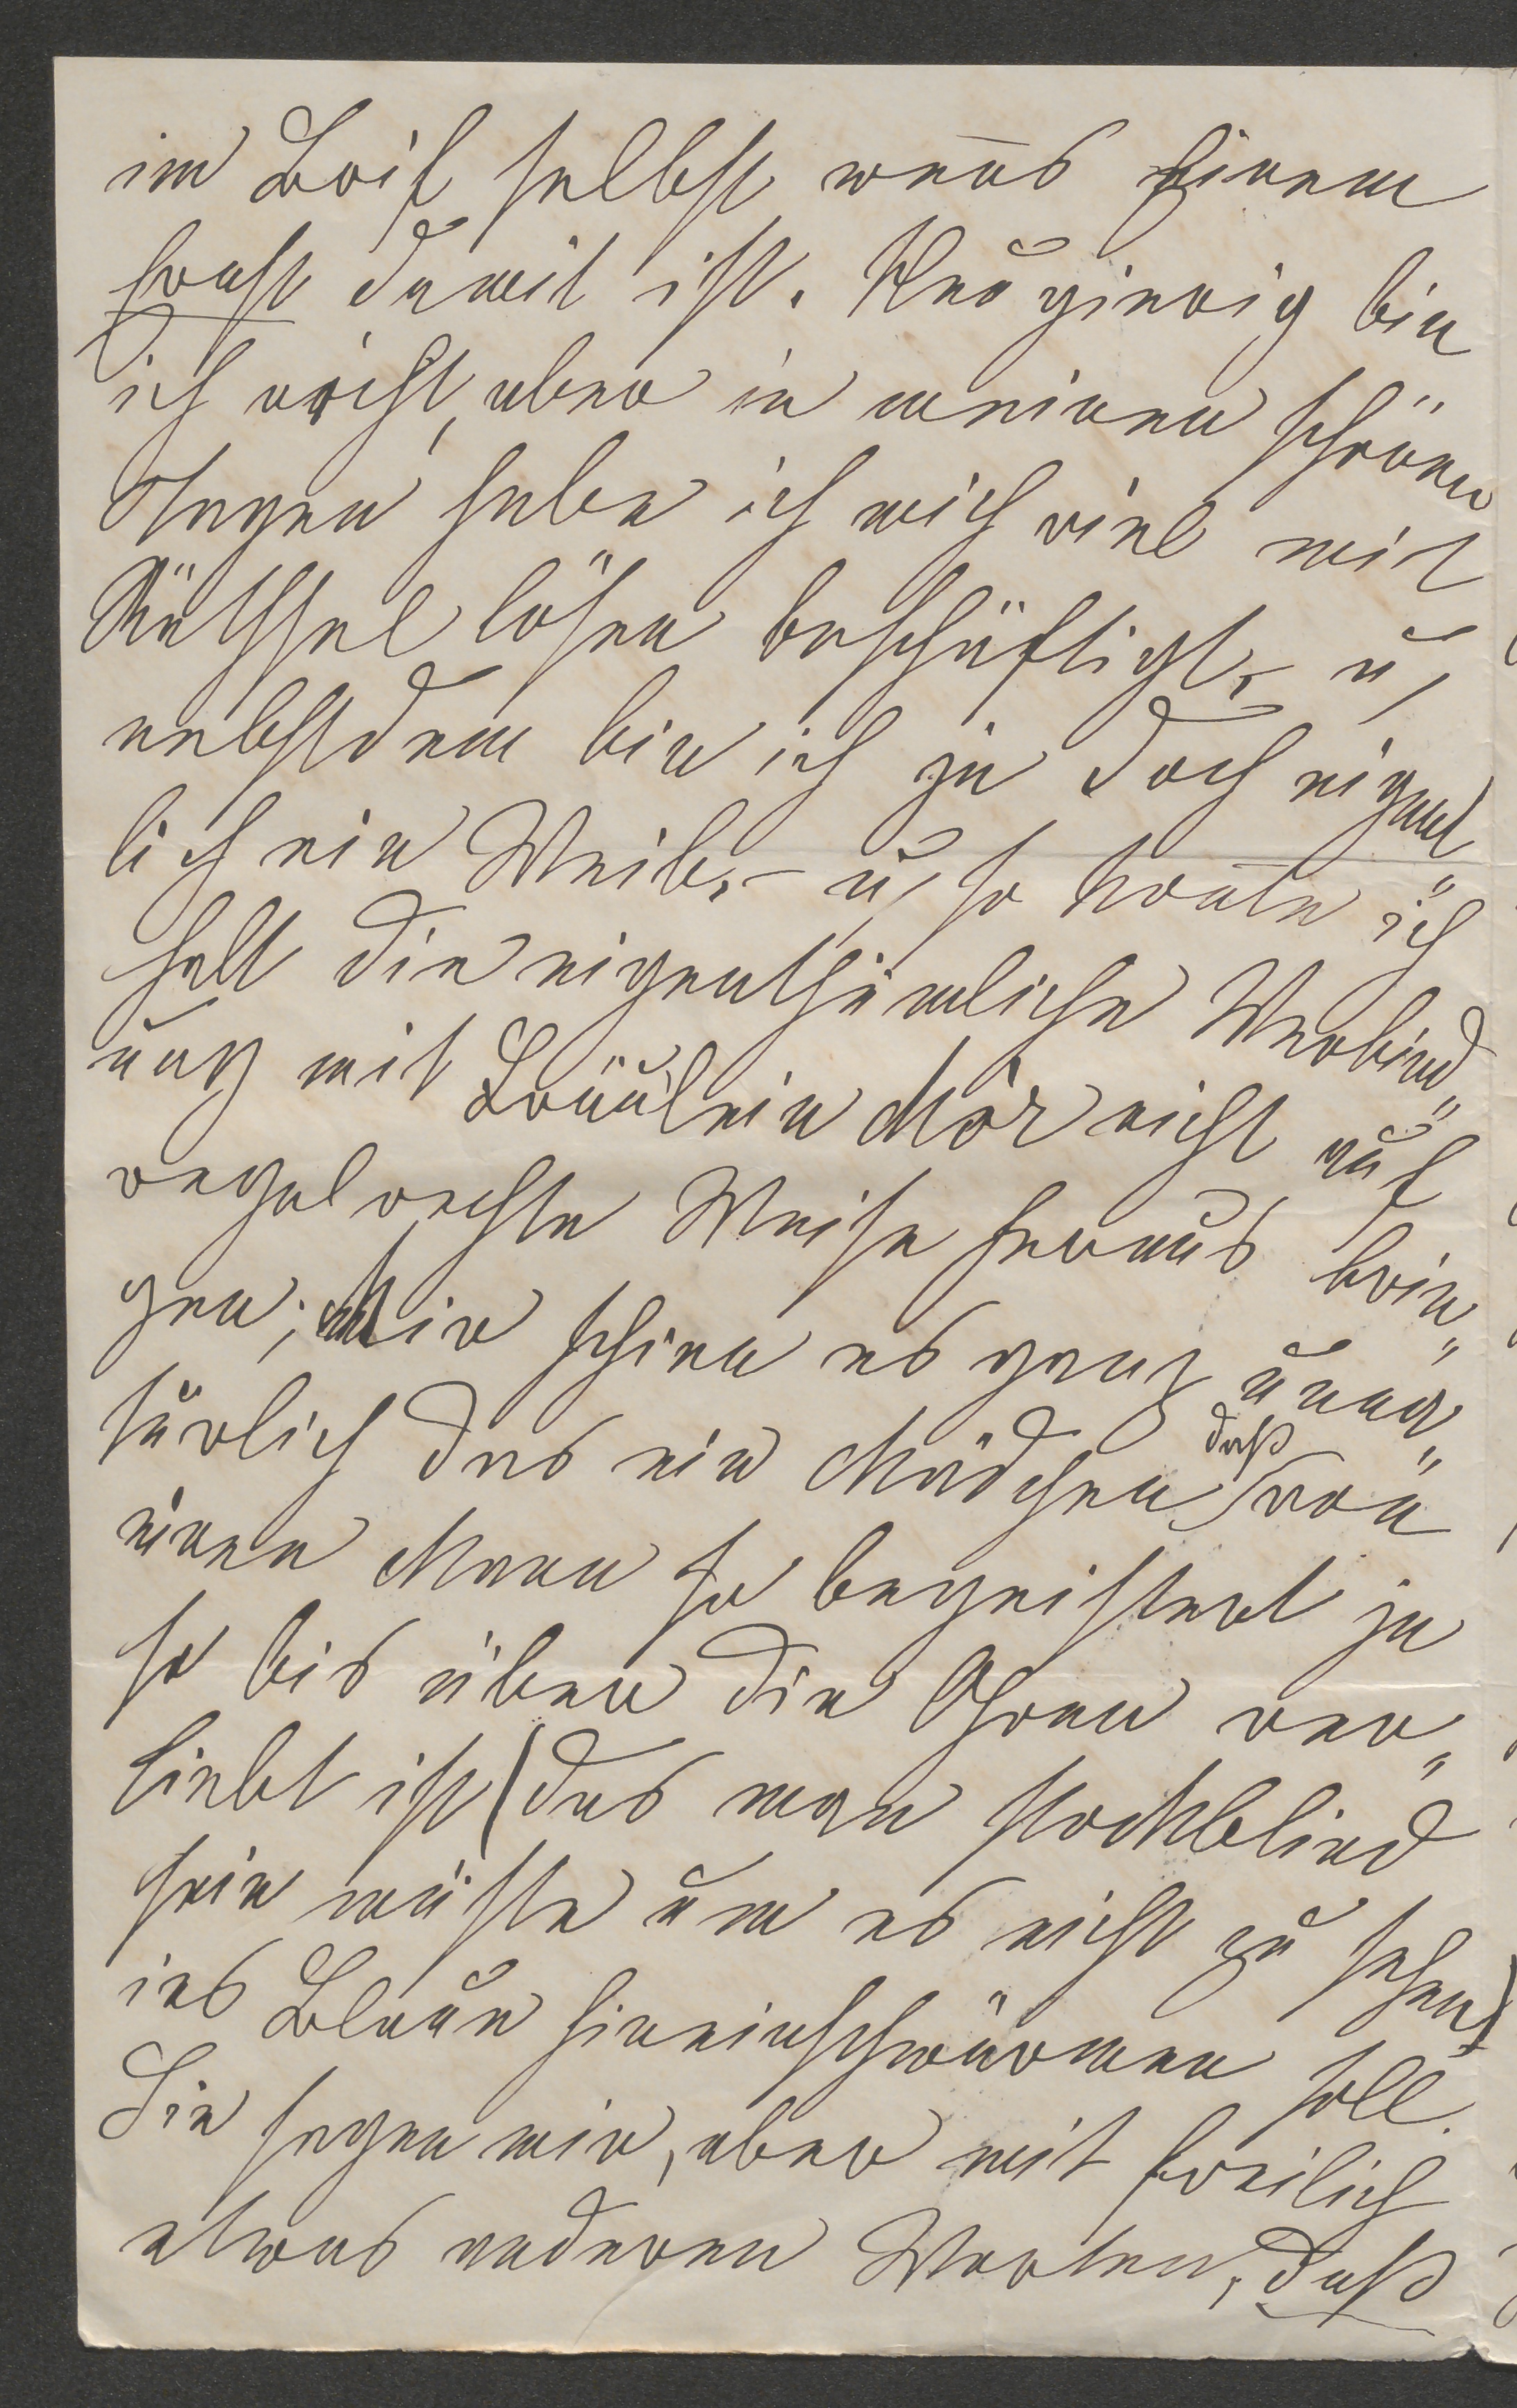 im Brief selbst wen̄s einem
ernst damit ist. Neugierig bin
ich nicht, aber in meinen schönen
Tagen habe ich mich viel mit
Räthsel lösen beschäftigt, – u,
nebstdem bin ich ja doch eigent„
lich ein Weib, – u, so kon̄te ich
halt die eigenthümliche Verbind„
ung mit Fräulein Mör nicht auf
regelrechte Weise heraus brin„
gen; Mir schien es ganz unna„
türlich das ein Mädchen daß von
einen Mann so begeistert ja
so bis über die Ohren ver„
liebt ist (das man stockblind
sein müßte um es nicht zu sehen)
ins Blaue hineinschwärmen soll.
Sie sagen mir, aber mit freilich
etwas anderen Worten, daß